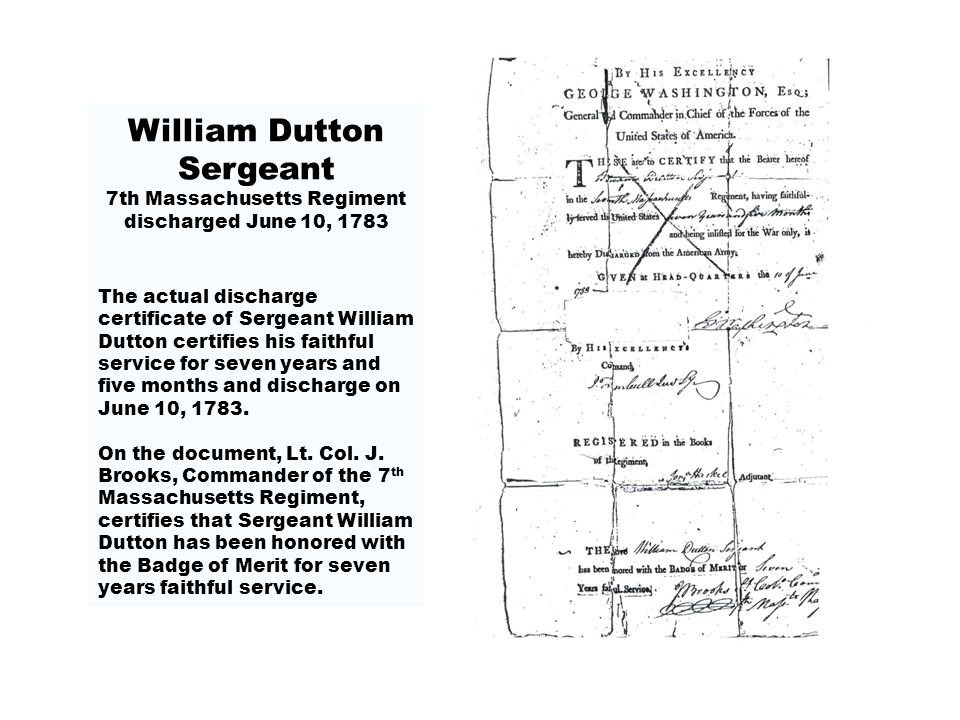 William Dutton
Sergeant
7th Massachusetts Regiment
discharged June 10, 1783
The actual discharge
certificate of Sergeant William
Dutton certifies his faithful
service for seven years and
five months and discharge on
June 10, 1783.
On the document, Lt. Col. J.
Brooks, Commander of the 7th
Massachusetts Regiment,
certifies that Sergeant William
Dutton has been honored with
the Badge of Merit for seven
years faithful service.
BY HIS EXCELLENCY
GEORGE WASHINGTON, ESQ;
General Commander in Chief of the Forces of the
United States of America.
THESE are to CERTIFY that the Bearer hereof
Dutton
in the Massachusetts Regiment, having faithful-
ly served the United States seven Years and five Months
and being inlisted for the War only, is
hereby DISCHARGED from the American Army.
GIVEN at HEAD-QUARTERS the 10 of June
1783
G Washington
By HIS EXCELLENCY'S
Comand,
REGISTERED in the Books
of the Regiment,
Adjutant
THE William Dutton Serjeant
has been nored with the BADGE of MERIT for Seven
Years Service.
J Brooks Lt Col.